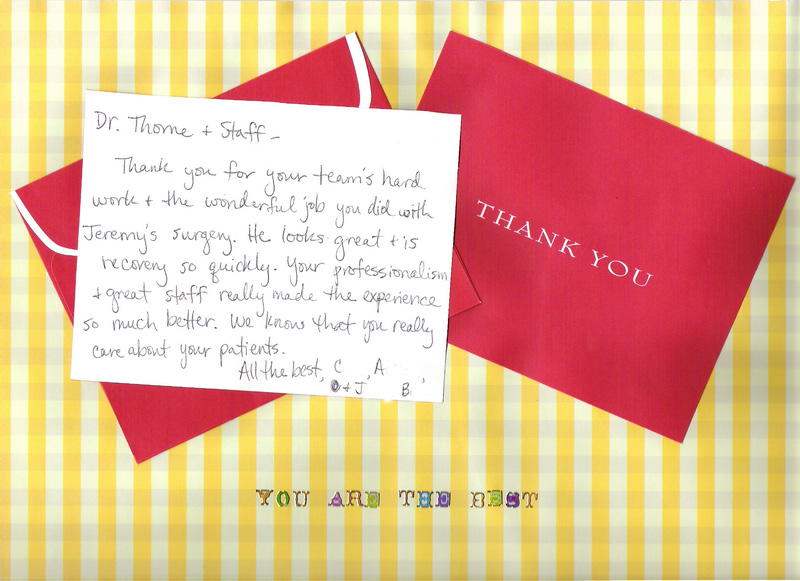 Dr. Thorne + Staff -
Thank you for your team's hard
work + the wonderful job you did with
Jeremy's surgery. He looks great + is
recovery so quickly. Your professionalism
+ great staff really made the experience
so much better. We know that you really
care about your patients.
All the best, C , A ,
O + J B.
THANK YOU
YOU ARE THE BEST